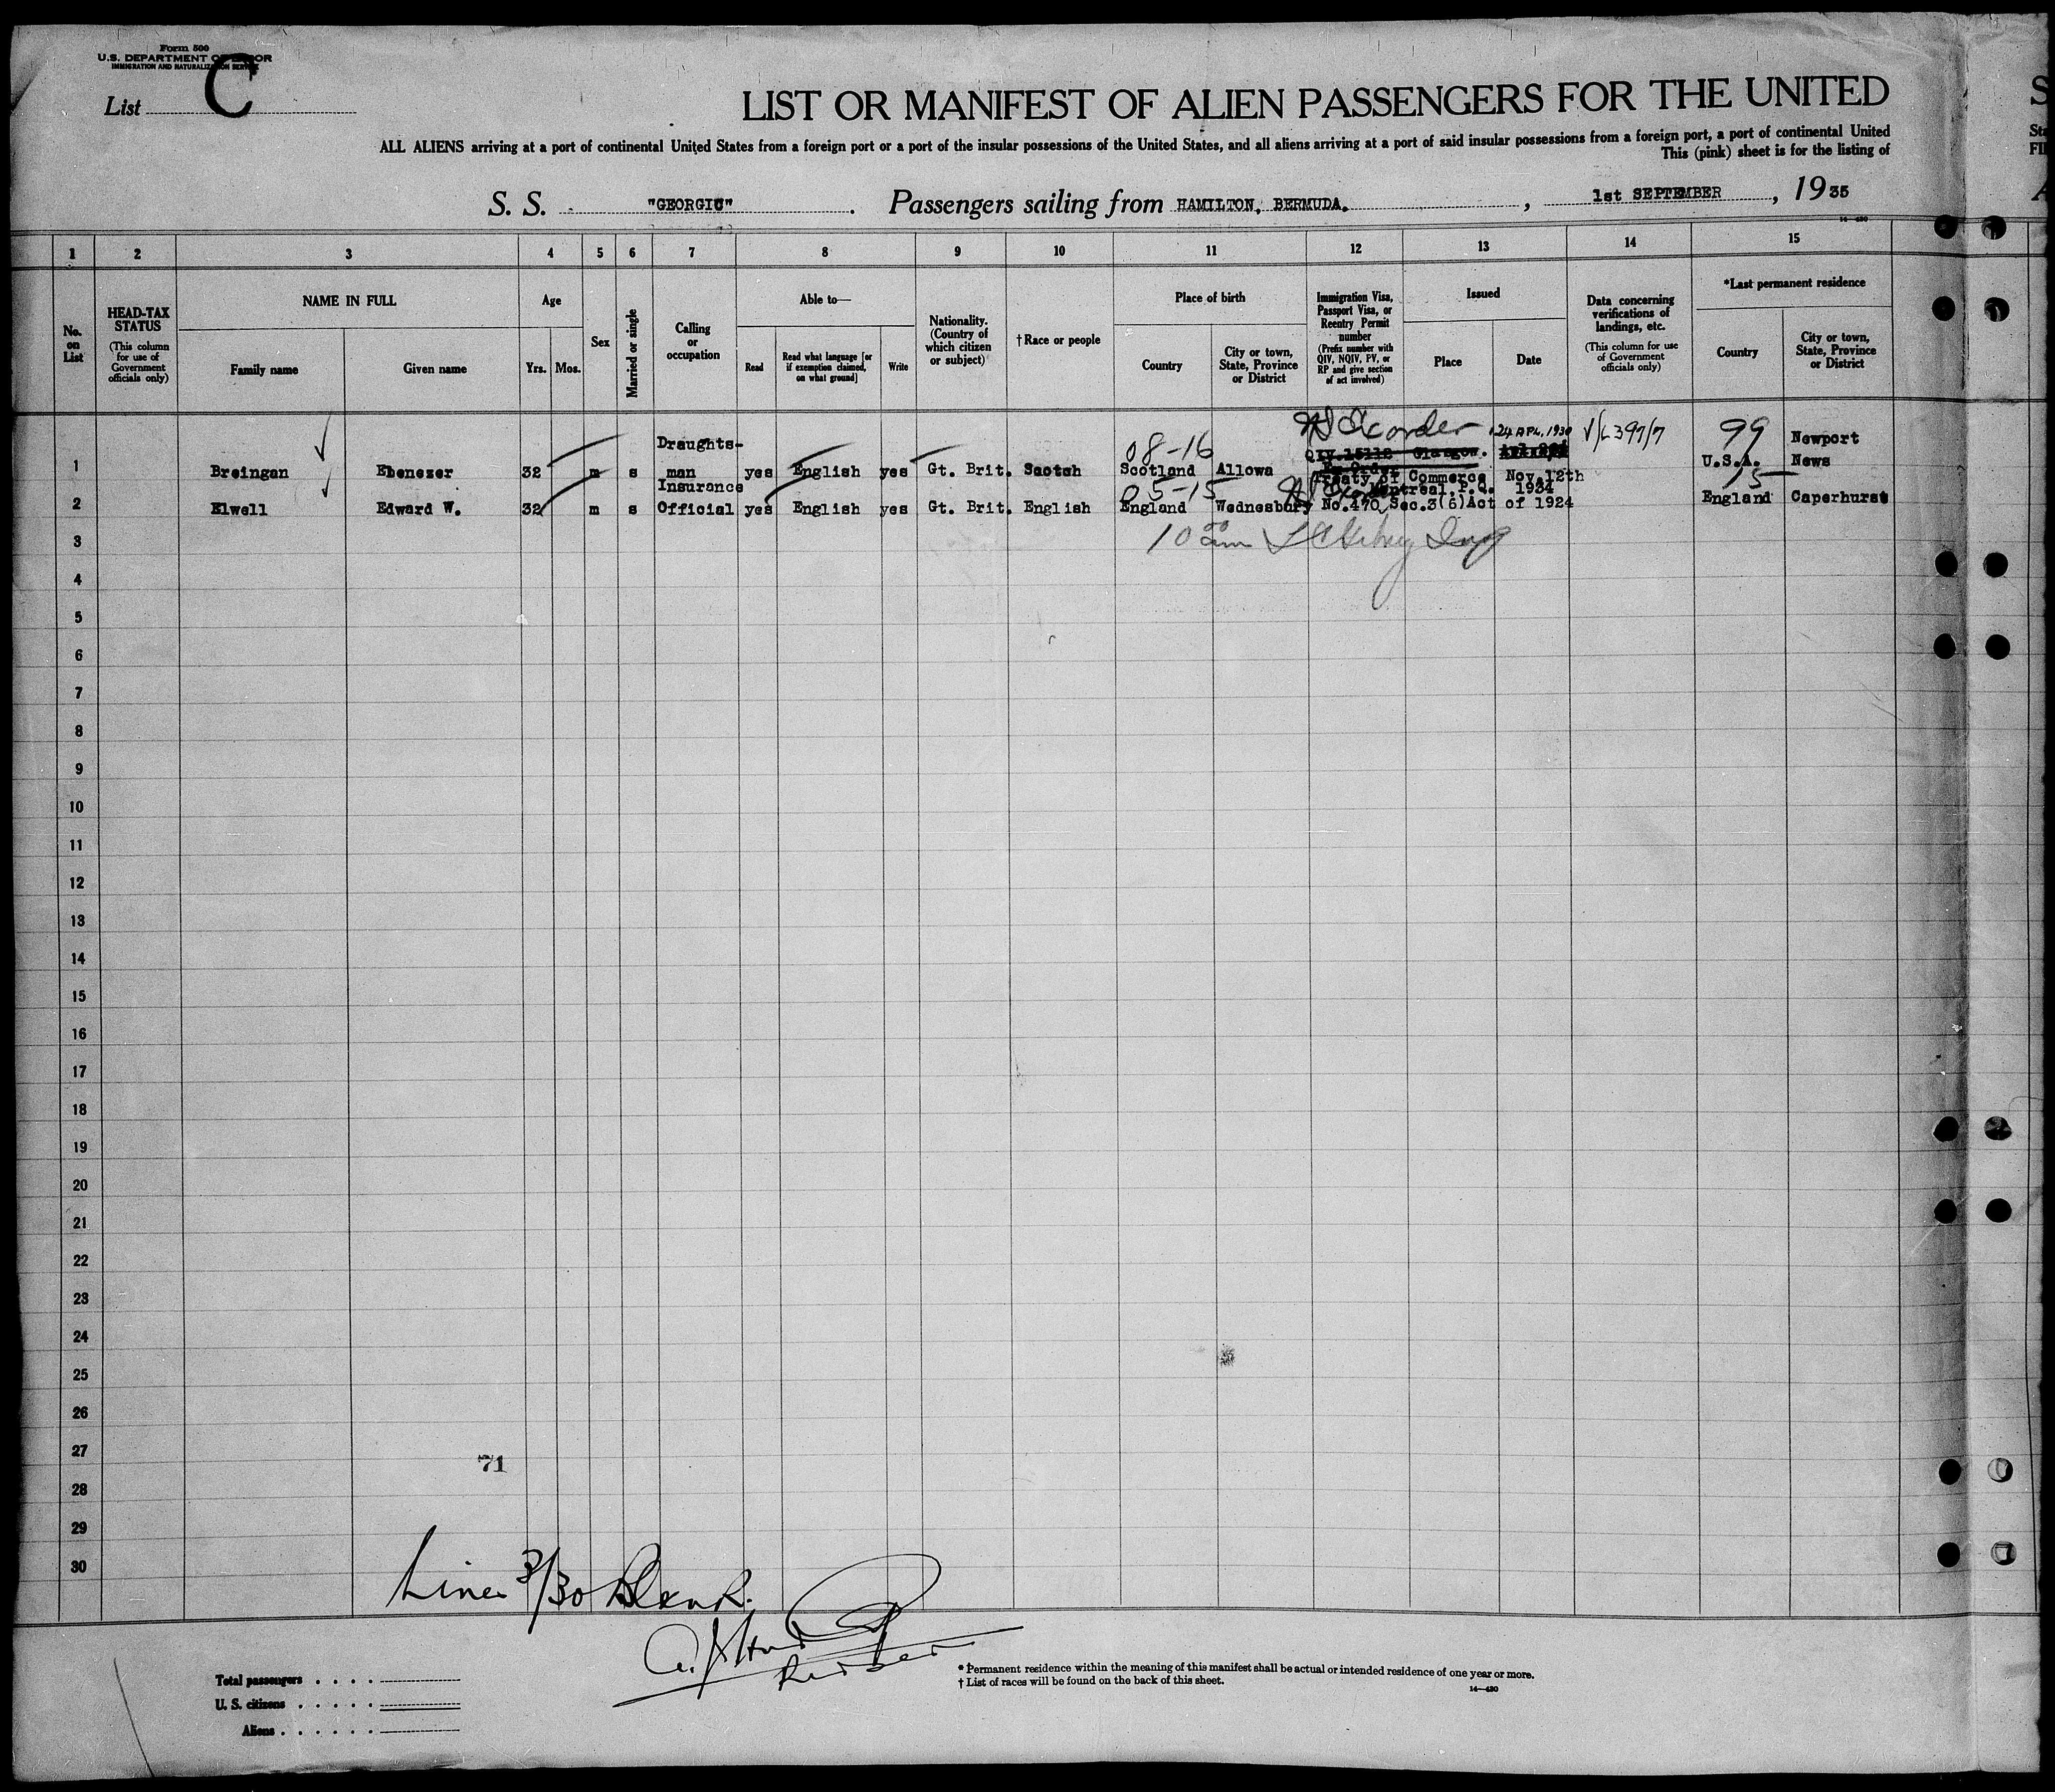 Form 500
U.S. DEPARTMENT OF LABOR
IMMIGRATION AND NATURALIZATION SERVICE
List C
LIST OR MANIFEST OF ALIEN PASSENGERS FOR THE UNITED
ALL ALIENS arriving at a port of continental United States from a foreign port or a port of the insular possessions of the United States, and all aliens arriving at a port of said insular possessions from a foreign port, a port of continental United
This (pink) sheet is for the listing of
S. S. "GEORGIC". Passengers sailing from HAMILTON, BERMUDA. , 1st SEPTEMBER , 1935
1 2 3 4 5 6 7 8 9 10 11 12 13 14 15
No. on List
HEAD-TAX STATUS
(This column for use of Government officials only)
NAME IN FULL
Family name
Given name
Age
Yrs. Mos.
Sex
Married or single
Calling or occupation
Able to—
Read
Read what language [or if exemption claimed, on what ground]
Write
Nationality. (Country of which citizen or subject)
†Race or people
Place of birth
Country
City or town, State, Province or District
Immigration Visa, Passport Visa, or Reentry Permit number
(Prefix number with QIV, NQIV, PV, or RP and give section of act involved)
Issued
Place
Date
Data concerning verifications of landings, etc.
(This column for use of Government officials only)
*Last permanent residence
Country
City or town, State, Province or District
08-16 24 APL, 1930 99 Newport
Draughts-
1 Breingan Ebenezer 32 m s man yes English yes Gt. Brit. Scotch Scotland Allowa QIV.15112 Glasgow. U.S.A. News
Insurance 05-15 Treaty of Commerce Nov.12th
Montreal, P.Q. 1934 15
2 Elwell Edward W. 32 m s Official yes English yes Gt. Brit. English England Wednesbury No.470 Sec.3(6)Act of 1924 England Caperhurst
3 10 00 am
4
5
6
7
8
9
10
11
12
13
14
15
16
17
18
19
20
21
22
23
24
25
26
27
71
28
29
30
Lines 3/30 Blank.
Total passengers
U. S. citizens
Aliens
* Permanent residence within the meaning of this manifest shall be actual or intended residence of one year or more.
† List of races will be found on the back of this sheet.
14—430